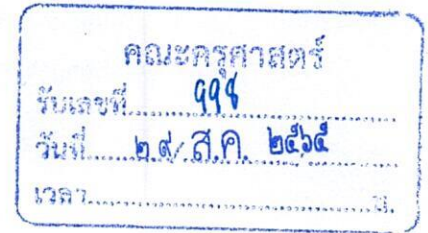 คณะครุศาสตร์
รับเลขที่ ๑๑๕
วันที่ ๒๙ ส.ค. ๒๕๖๕
เวลา น.